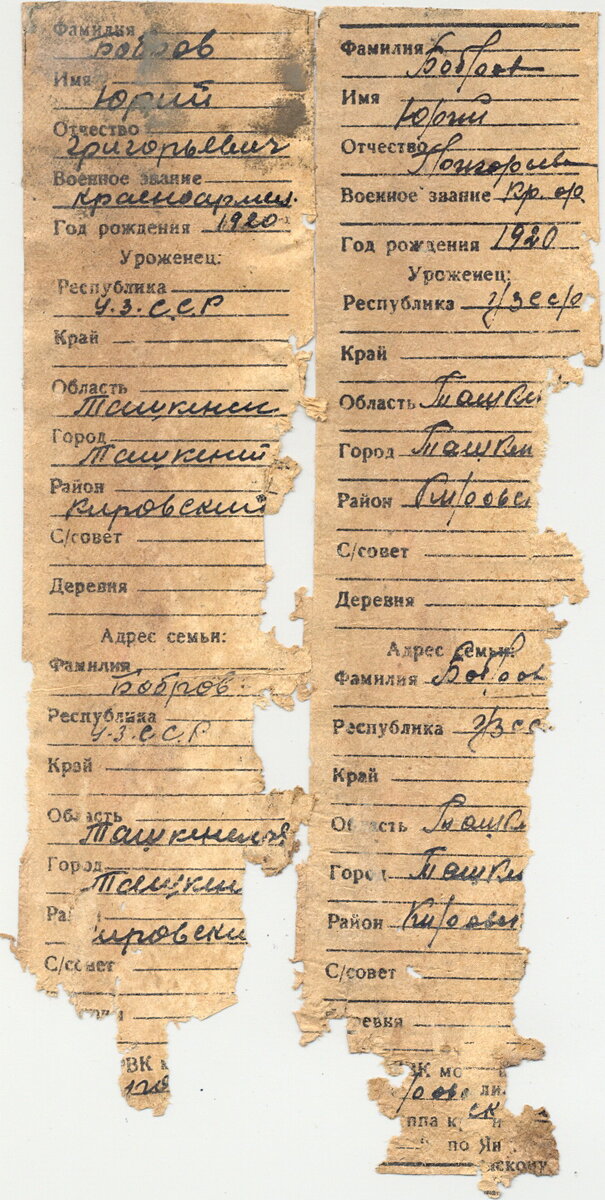 Фамилия
Бобров
Имя
Юрий
Отчество
Григорьевич
Военное звание
Красноармеец
Год рождения 1920
Уроженец:
Республика
У.З.С.С.Р
Край
Область
Ташкенск
Город
Ташкент
Район
Кировский
С/совет
Деревня
Адрес семьи:
Фамилия
Бобров
Республика
У.З.С.С.Р
Край
Область
Ташкенская
Город
Ташкен
Ра
ировски
С/совет
РВК к
Фамилия Бобров
Имя
Юрий
Отчество
Военное звание Кр. ар
Год рождения 1920
Уроженец:
Республика УзССР
Край
Область Ташке
Город Ташкен
Район Кировс
С/совет
Деревня
Адрес семьи:
Фамилия Бобров
Республика УзСС
Край
Область Ташке
Город Ташке
Район Кировск
С/совет
ревня
ВК мо
ли
ппа к
по Ян
скому